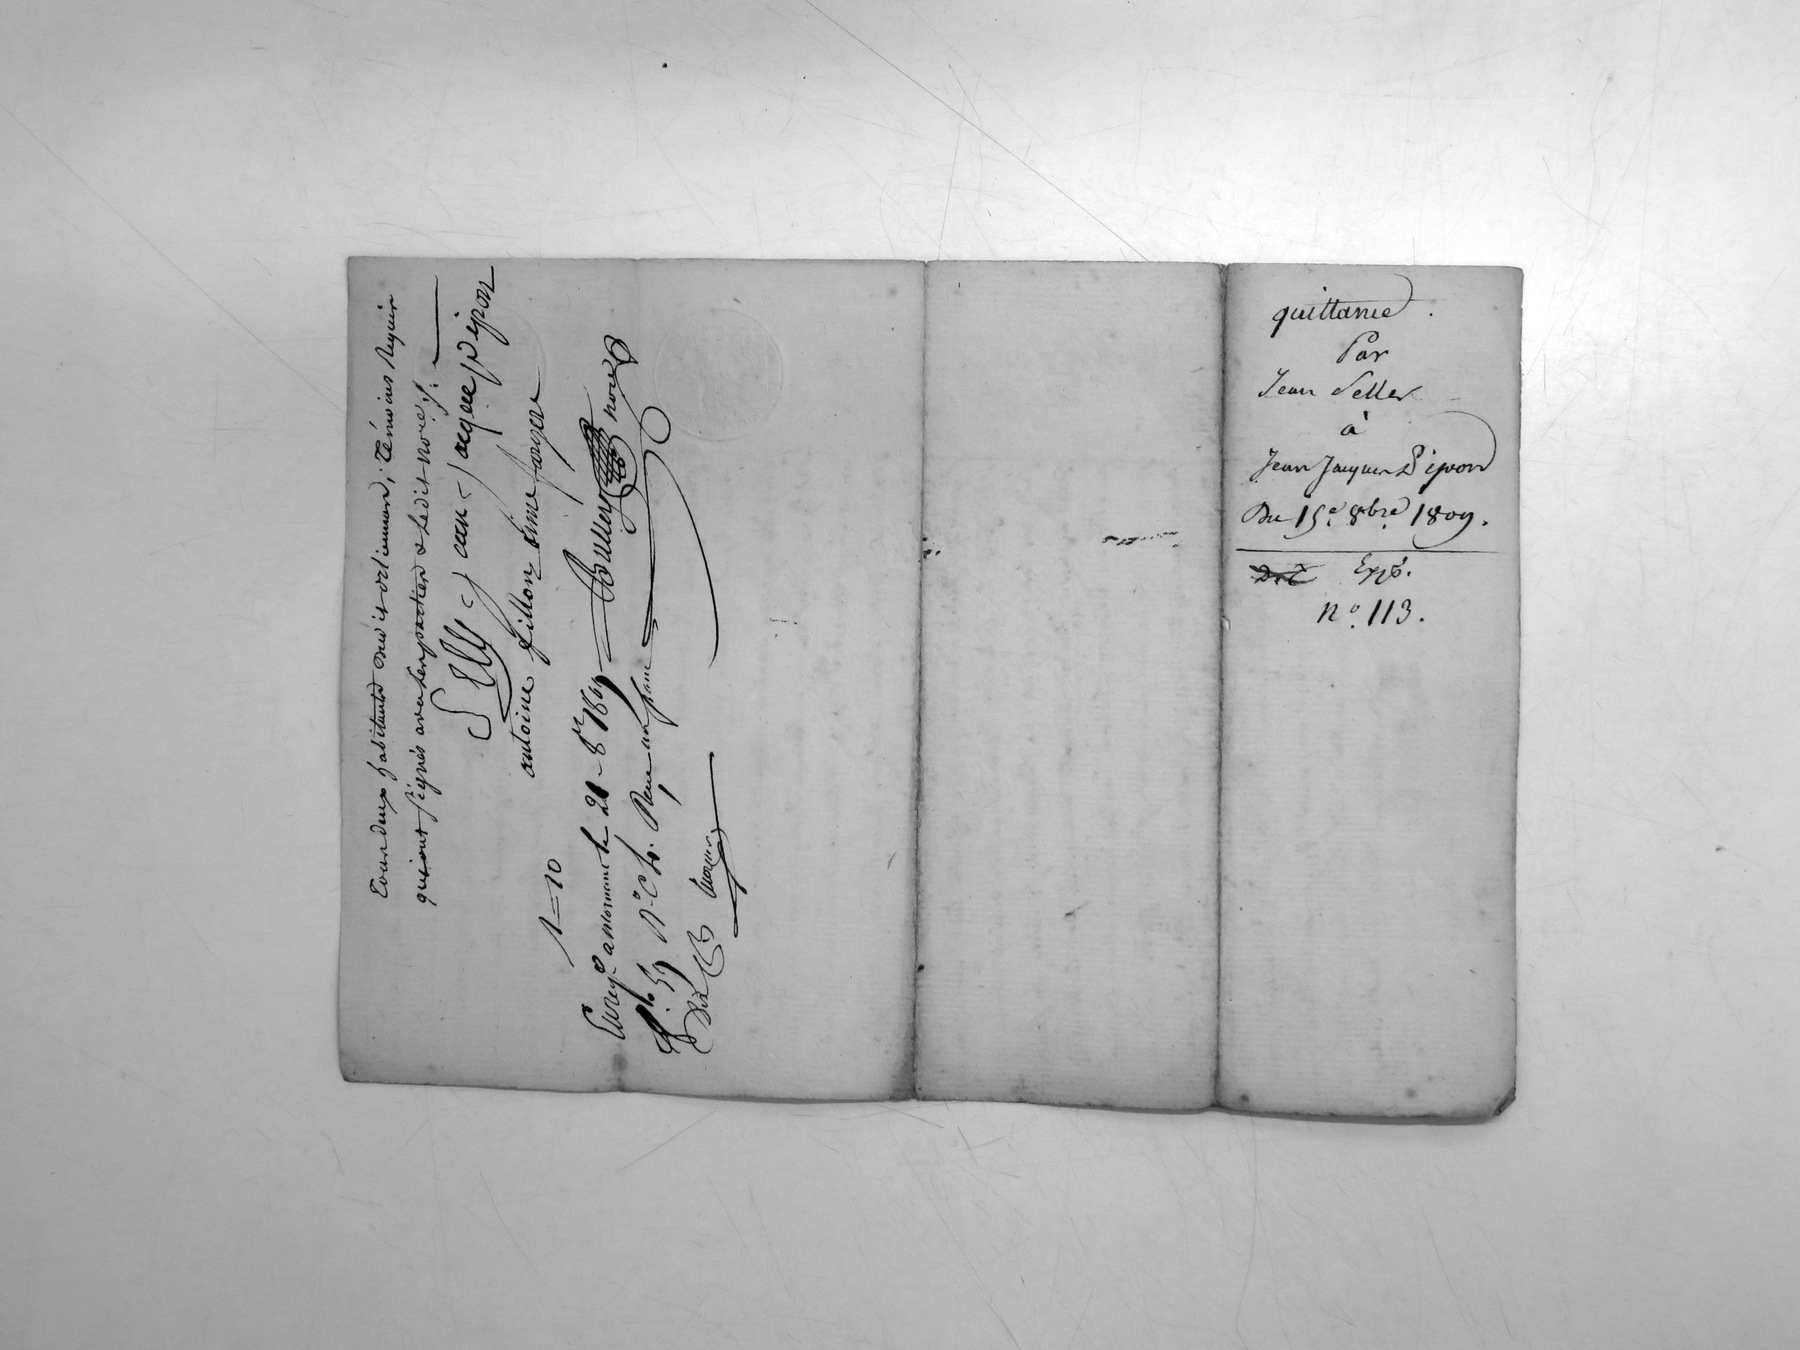 Tous deux habitants dudit ortimmans, Témoins Requis
qui ont signés avec les parties & ledit nore ./.
Selle jean jacque pepon
antoine fillon aime farges
Boulles nore
1=10
Enregé a le 21 8re 1809
fo 59 Ro C 6. Reçu un franc
dix
quittance.
Par
Jean Selles
à
Jean Jacques Pepon
Du 15e. 8bre 1809.
Expé.
no. 113.